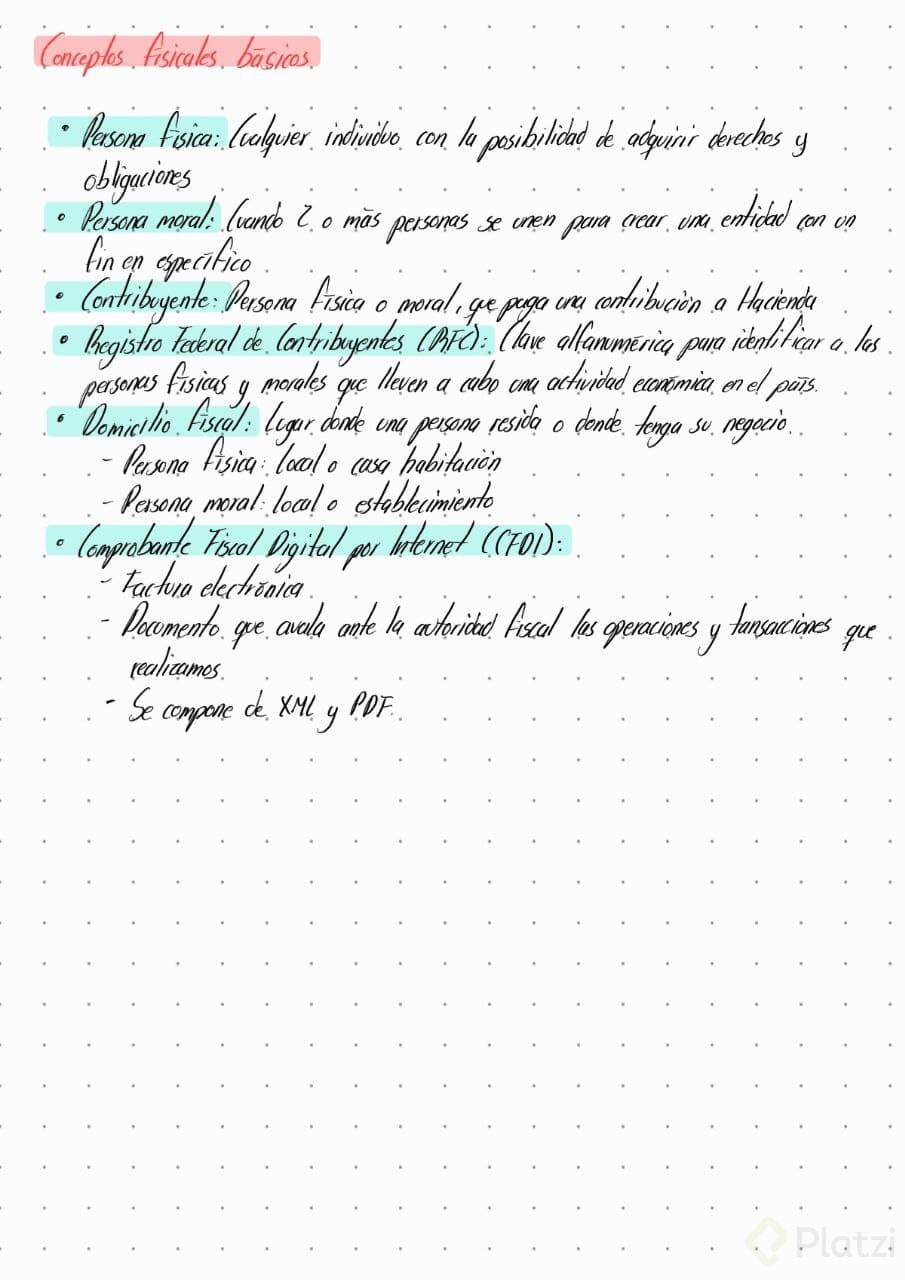 Conceptos fisicales básicos
• Persona física: Cualquier individuo con la posibilidad de adquirir derechos y
obligaciones
• Persona moral: Cuando 2 o más personas se unen para crear una entidad con un
fin en específico
• Contribuyente: Persona física o moral, que paga una contribución a Hacienda
• Registro Federal de Contribuyentes (RFC): Clave alfanumérica para identificar a las
personas físicas y morales que lleven a cabo una actividad económica en el país.
• Domicilio fiscal: Lugar donde una persona resida o donde tenga su negocio.
- Persona física: local o casa habitación
- Persona moral: local o establecimiento
• Comprobante Fiscal Digital por Internet (CFDI):
- Factura electrónica
- Documento que avala ante la autoridad fiscal las operaciones y tansacciones que
realizamos
- Se compone de XML y PDF.
Platzi